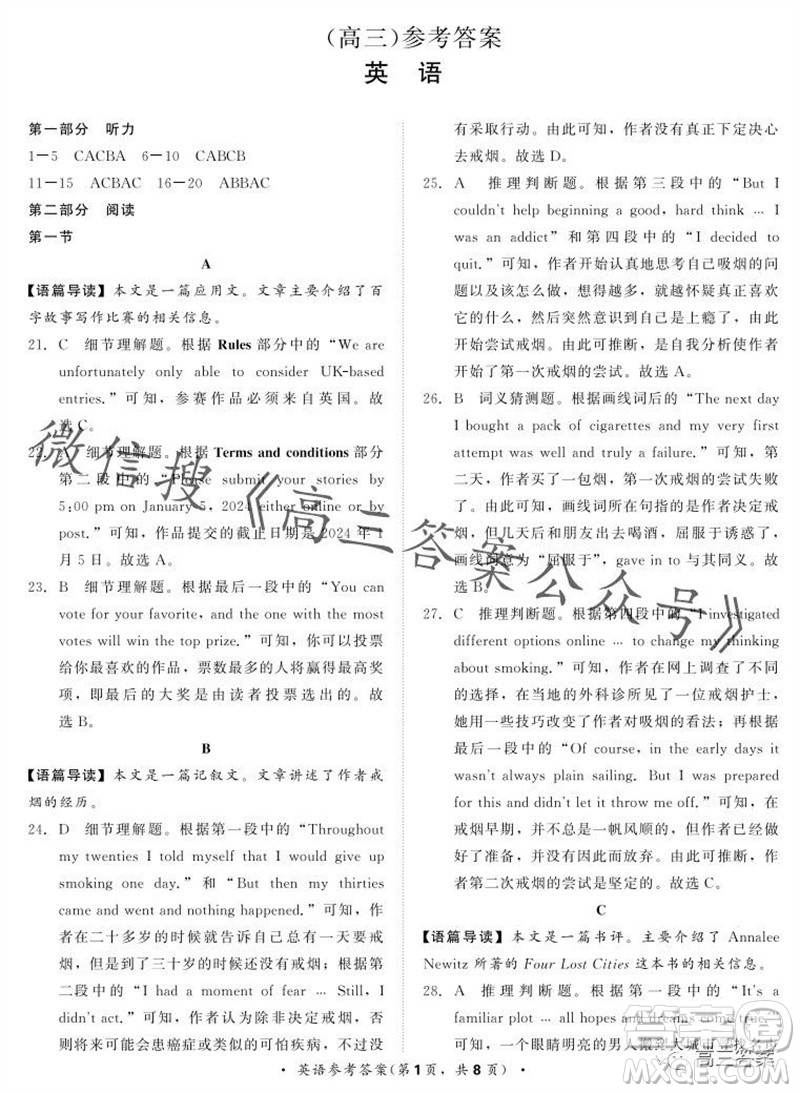 (高三)参考答案
英 语
第一部分 听力
1—5 CACBA 6—10 CABCB
11—15 ACBAC 16—20 ABBAC
第二部分 阅读
第一节
A
【语篇导读】本文是一篇应用文。文章主要介绍了百
字故事写作比赛的相关信息。
21. C 细节理解题。根据 Rules 部分中的“We are
unfortunately only able to consider UK-based
entries.”可知,参赛作品必须来自英国。故
选 C。
22. A 细节理解题。根据 Terms and conditions 部分
第二段中的“Please submit your stories by
5:00 pm on January 5, 2024 either online or by
post.”可知,作品提交的截止日期是 2024 年 1
月 5 日。故选 A。
23. B 细节理解题。根据最后一段中的“You can
vote for your favorite, and the one with the most
votes will win the top prize.”可知,你可以投票
给你最喜欢的作品,票数最多的人将赢得最高奖
项,即最后的大奖是由读者投票选出的。故
选 B。
B
【语篇导读】本文是一篇记叙文。文章讲述了作者戒
烟的经历。
24. D 细节理解题。根据第一段中的“Throughout
my twenties I told myself that I would give up
smoking one day.”和“But then my thirties
came and went and nothing happened.”可知,作
者在二十多岁的时候就告诉自己总有一天要戒
烟,但是到了三十岁的时候还是没有戒烟。根据第
二段中的“I had a moment of fear … Still, I
didn't act.”可知,作者认为除非决定戒烟,否
则将来会患癌症或类似的可怕疾病,不过还没
有采取行动。由此可知,作者没有真正下定决心
去戒烟。故选 D。
25. A 推理判断题。根据第三段中的“But I
couldn't help beginning a good, hard think … I
was an addict”和第四段中的“I decided to
quit.”可知,作者开始认真地思考自己吸烟的问
题以及该怎么做,想得多了,就越怀疑真正喜欢
的是什么,然后突然意识到自己是上瘾了,由于
此决定戒烟。由此可推断,是一番深思开启了作
者第一次戒烟的尝试。故选 A。
26. B 词义猜测题。根据画线词后的“The next day
I bought a pack of cigarettes and my very first
attempt was well and truly a failure.”可知,第
二天,作者买了一包烟,第一次尝试戒烟彻底失
败了。由此可知,画线词所在句指的是作者决定戒
烟,但几天后和朋友出去喝酒,屈服于诱惑了,
画线词意为“屈服于”,gave in to 与其同义。故
选 B。
27. C 推理判断题。根据第四段中的“I investigated
different options online … to change my thinking
about smoking.”可知,作者在网上调查了不同
的选择,在当地的外科诊所见了一位戒烟护士,
她用一些技巧改变了作者对吸烟的看法;再根据
最后一段中的“Of course, in the early days it
wasn't always plain sailing. But I was prepared
for this and didn't let it throw me off.”可知,在
戒烟早期,并不是一帆风顺的,但作者已经做好
准备,不会因此而放弃。由此可推断,作者第二次戒烟的尝试是坚定的。故选 C。
C
【语篇导读】本文是一篇书评。主要介绍了 Annalee
Newitz 所著的 Four Lost Cities 这本书的相关信息。
28. A 推理判断题。根据第一段中的“It's a
familiar plot … all hopes and dreams come true.”
可知,一个眼睛明亮的男人搬
英语参考答案(第 1 页,共 8 页)
微信搜《高三答案公众号》
高三答案